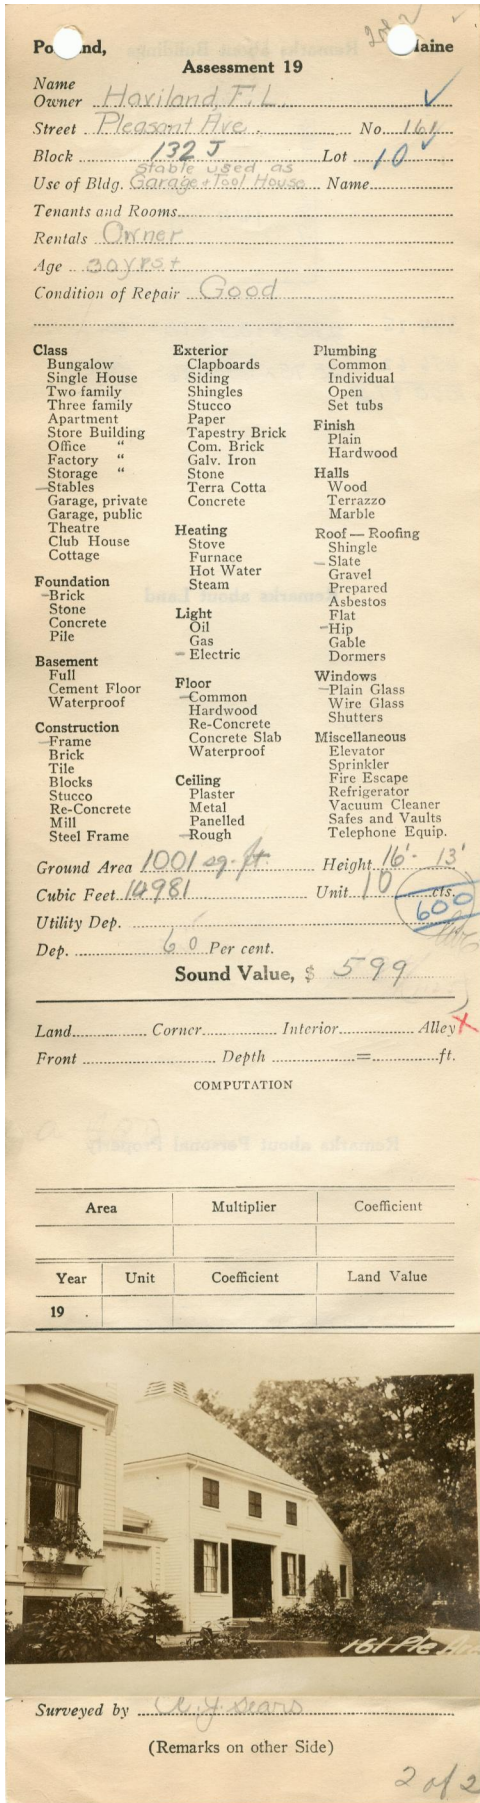 2 of 2
Po nd, Maine
Assessment 19
Name
Owner Haviland, F. L.
Street Pleasant Ave. No. 161
Block 132 J Lot 10
Stable used as
Use of Bldg. Garage + Tool House Name
Tenants and Rooms
Rentals Owner
Age 30 yrs +
Condition of Repair Good
Class
Bungalow
Single House
Two family
Three family
Apartment
Store Building
Office "
Factory "
Storage "
Stables
Garage, private
Garage, public
Theatre
Club House
Cottage
Foundation
Brick
Stone
Concrete
Pile
Basement
Full
Cement Floor
Waterproof
Construction
Frame
Brick
Tile
Blocks
Stucco
Re-Concrete
Mill
Steel Frame
Exterior
Clapboards
Siding
Shingles
Stucco
Paper
Tapestry Brick
Com. Brick
Galv. Iron
Stone
Terra Cotta
Concrete
Heating
Stove
Furnace
Hot Water
Steam
Light
Oil
Gas
Electric
Floor
Common
Hardwood
Re-Concrete
Concrete Slab
Waterproof
Ceiling
Plaster
Metal
Panelled
Rough
Plumbing
Common
Individual
Open
Set tubs
Finish
Plain
Hardwood
Halls
Wood
Terrazzo
Marble
Roof — Roofing
Shingle
Slate
Gravel
Prepared
Asbestos
Flat
Hip
Gable
Dormers
Windows
Plain Glass
Wire Glass
Shutters
Miscellaneous
Elevator
Sprinkler
Fire Escape
Refrigerator
Vacuum Cleaner
Safes and Vaults
Telephone Equip.
Ground Area 1001 sq. ft. Height 16' - 13'
Cubic Feet 14981 Unit 10 cts.
600
Utility Dep.
Dep. 60 Per cent.
Sound Value, $ 599
Land Corner Interior Alley X
Front Depth = ft.
COMPUTATION
Remarks about Personal Property
Area Multiplier Coefficient
Year Unit Coefficient Land Value
19 .
161 Ple Ave
Surveyed by A. J. Sears
(Remarks on other Side)
2 of 2